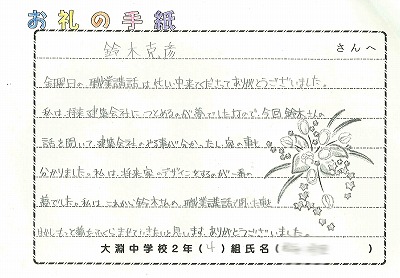 お礼の手紙
鈴木克彦 さんへ
金曜日の職業講話は忙しい中来てくださってありがとうございました。
私は、将来建築会社につとめるのが夢でしたので、今回鈴木さんの
話を聞いて、建築会社のやる事が分かったし、家の事も
分かりました。私は、将来家のデザインをするのが一番の
夢でした。私は、これから鈴木さんの、職業講話で聞いた事を
いかしもっと夢にしていきたいと思います。ありがとうございました。
大淵中学校2年(4)組氏名(